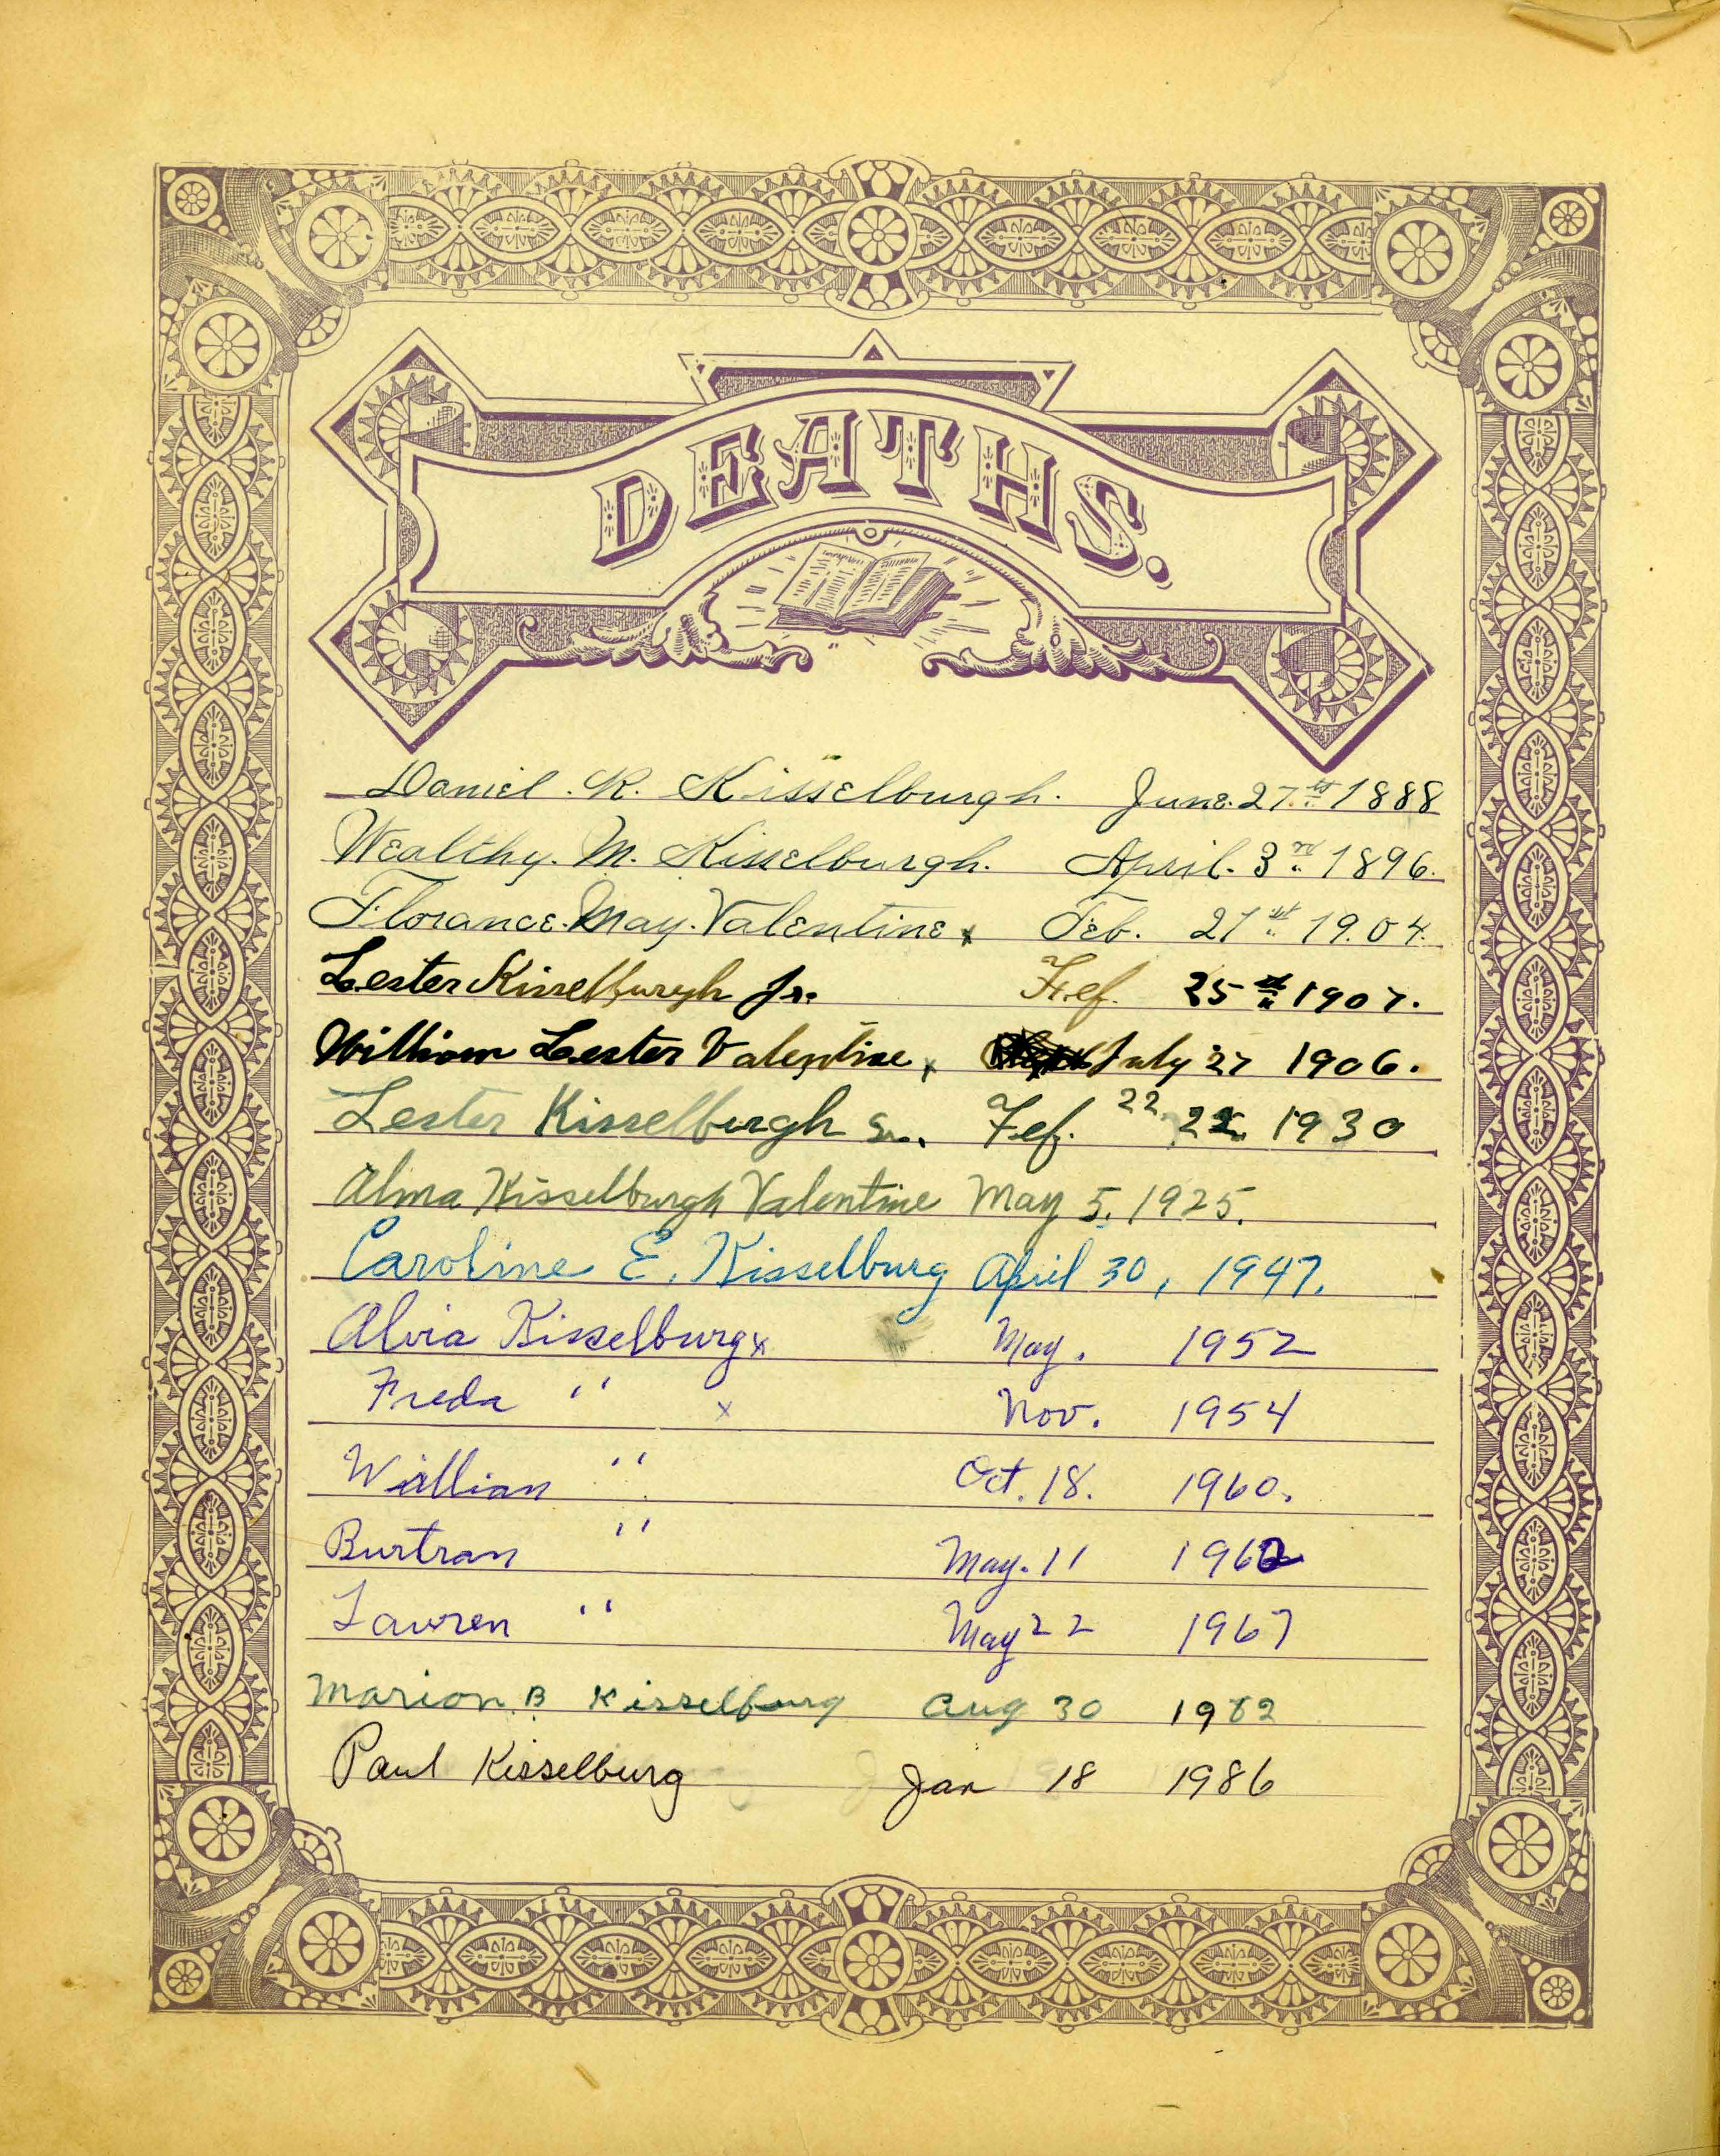 DEATHS.
Daniel. R. Kisselburgh. June. 27.th 1888
Wealthy. M. Kisselburgh. April. 3rd 1896.
Florance. May. Valentine x Feb. 21st 19.04.
Lester Kisselburgh Jr. Fef. 25th 1907.
William Lester Valentine x July 27 1906.
Lester Kisselburgh Sr. Fef. 22 1930
Alma Kisselburgh Valentine May 5. 1925.
Caroline E. Kisselburg April 30, 1947.
Alvia Kisselburg x May. 1952
Freda " x Nov. 1954
Willian " Oct. 18. 1960.
Burtran " May. 11 1962
Lawren " May 22 1967
Marion. B Kisselburg Aug 30 1982
Paul Kisselburg Jan 18 1986